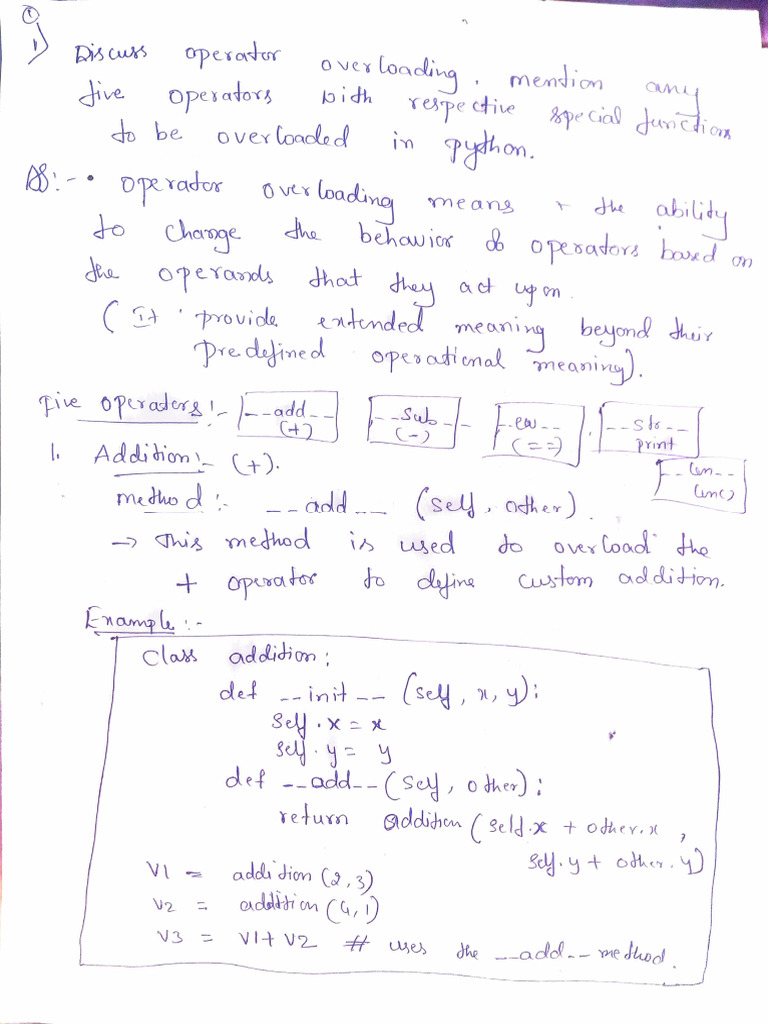 ①
1) Discuss operator overloading. mention any
five operators with respective special functions
to be overloaded in python.
AS:- • operator overloading means the ability
to change the behavior of operators based on
the operands that they act upon.
( It provide extended meaning beyond their
Predefined operational meaning).
Five operators:- __add__ __sub__ __eq__ __str__
(+) (-) (==) print
__len__
len()
1. Addition:- (+).
method:- __add__ (self, other).
→ This method is used to overload the
+ operator to define custom addition.
Example:-
Class addition:
def __init__ (self, x, y):
self.x = x
self.y = y
def __add__ (self, other):
return addition (self.x + other.x ,
self.y + other.y)
V1 = addition (2, 3)
V2 = addition (4, 1)
V3 = V1 + V2 # uses the __add__ method.